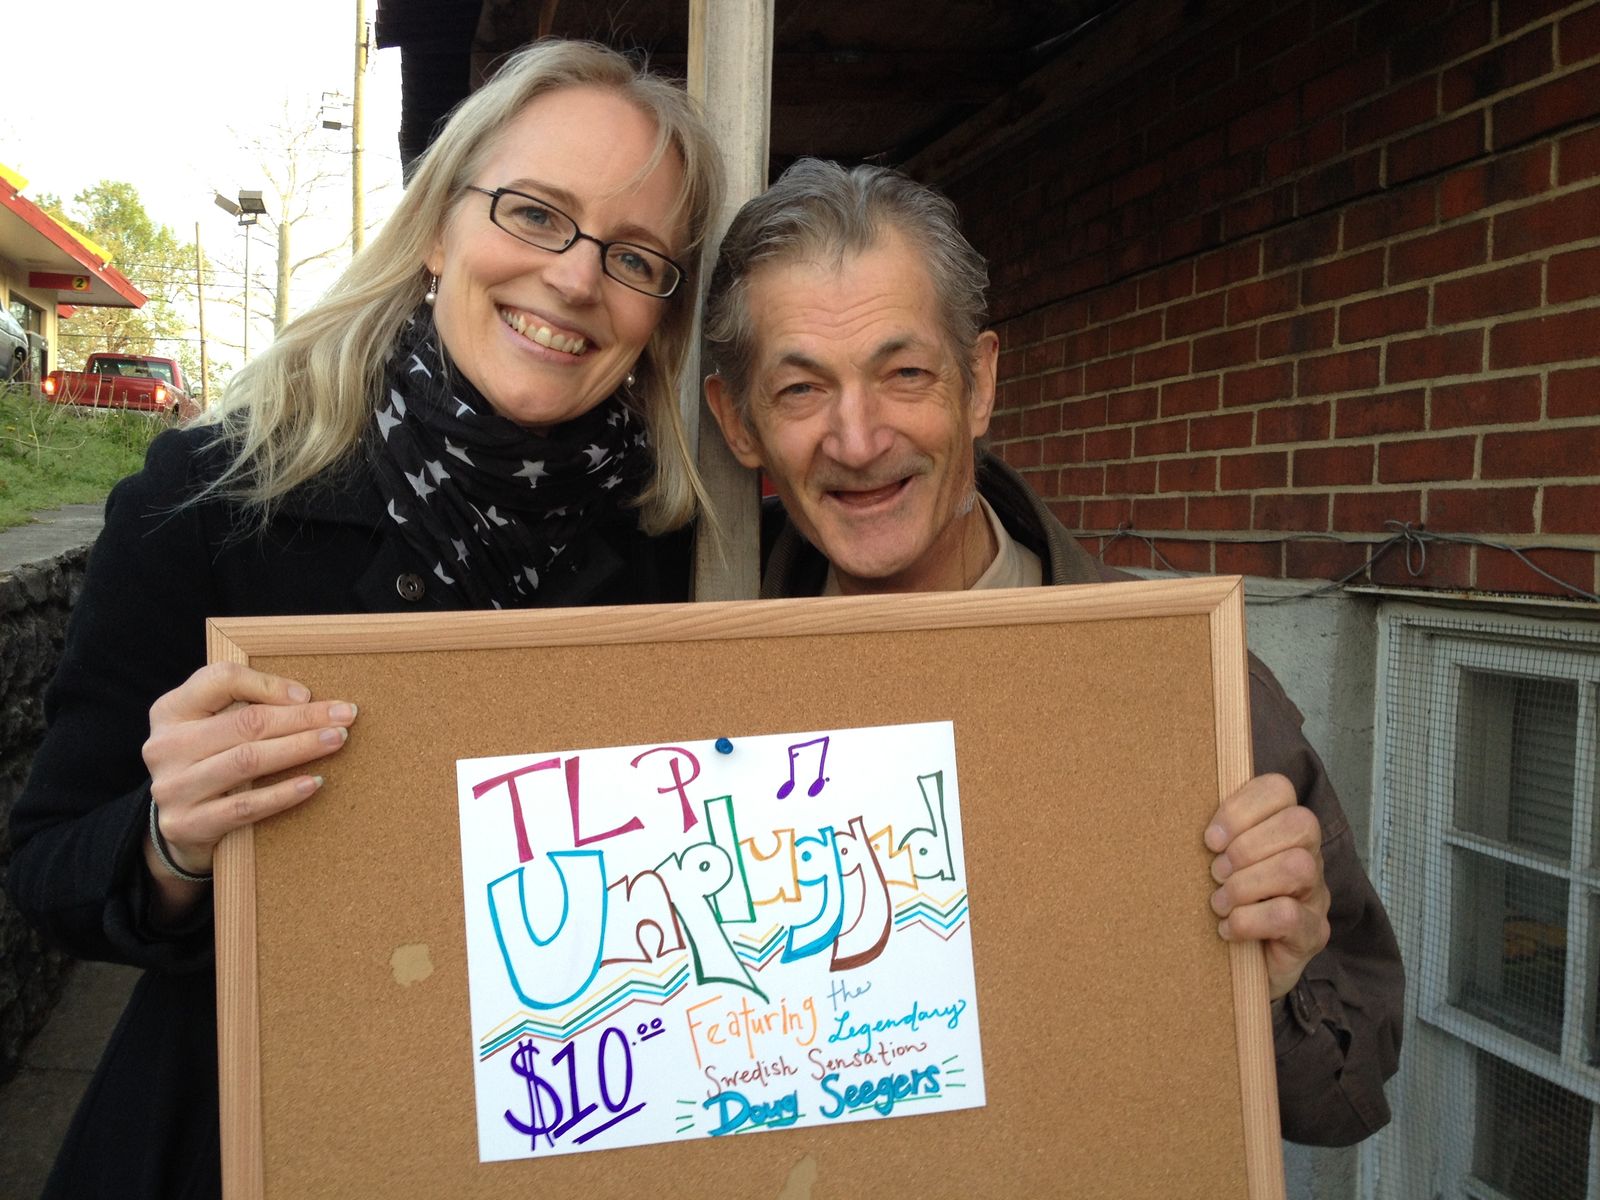 TLP
Unplugged
$10.00
Featuring the
Legendary
Swedish Sensation
Doug Seegers
2